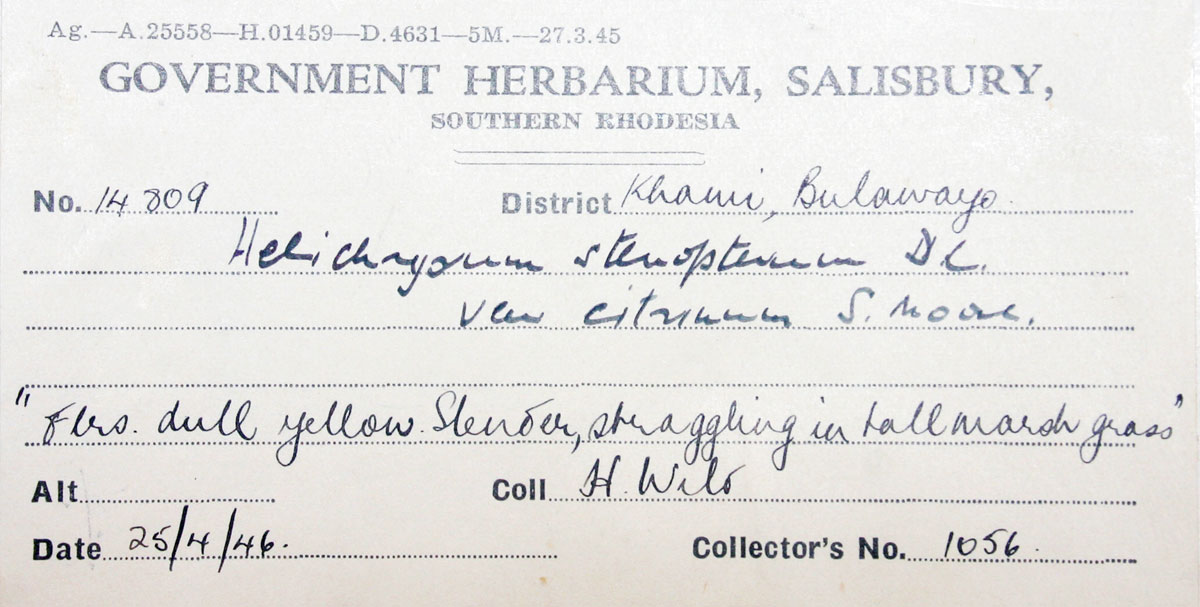 Ag.—A.25558—H.01459—D.4631—5M.—27.3.45
GOVERNMENT HERBARIUM, SALISBURY,
SOUTHERN RHODESIA
No. 14809 District Khami, Bulawayo.
Helichrysum stenopterum DC.
var citrinum S. Moore.
"Flrs. dull yellow. Slender, straggling in tall marsh grass"
Alt Coll H. Wild
Date 25/4/46. Collector's No. 1056.